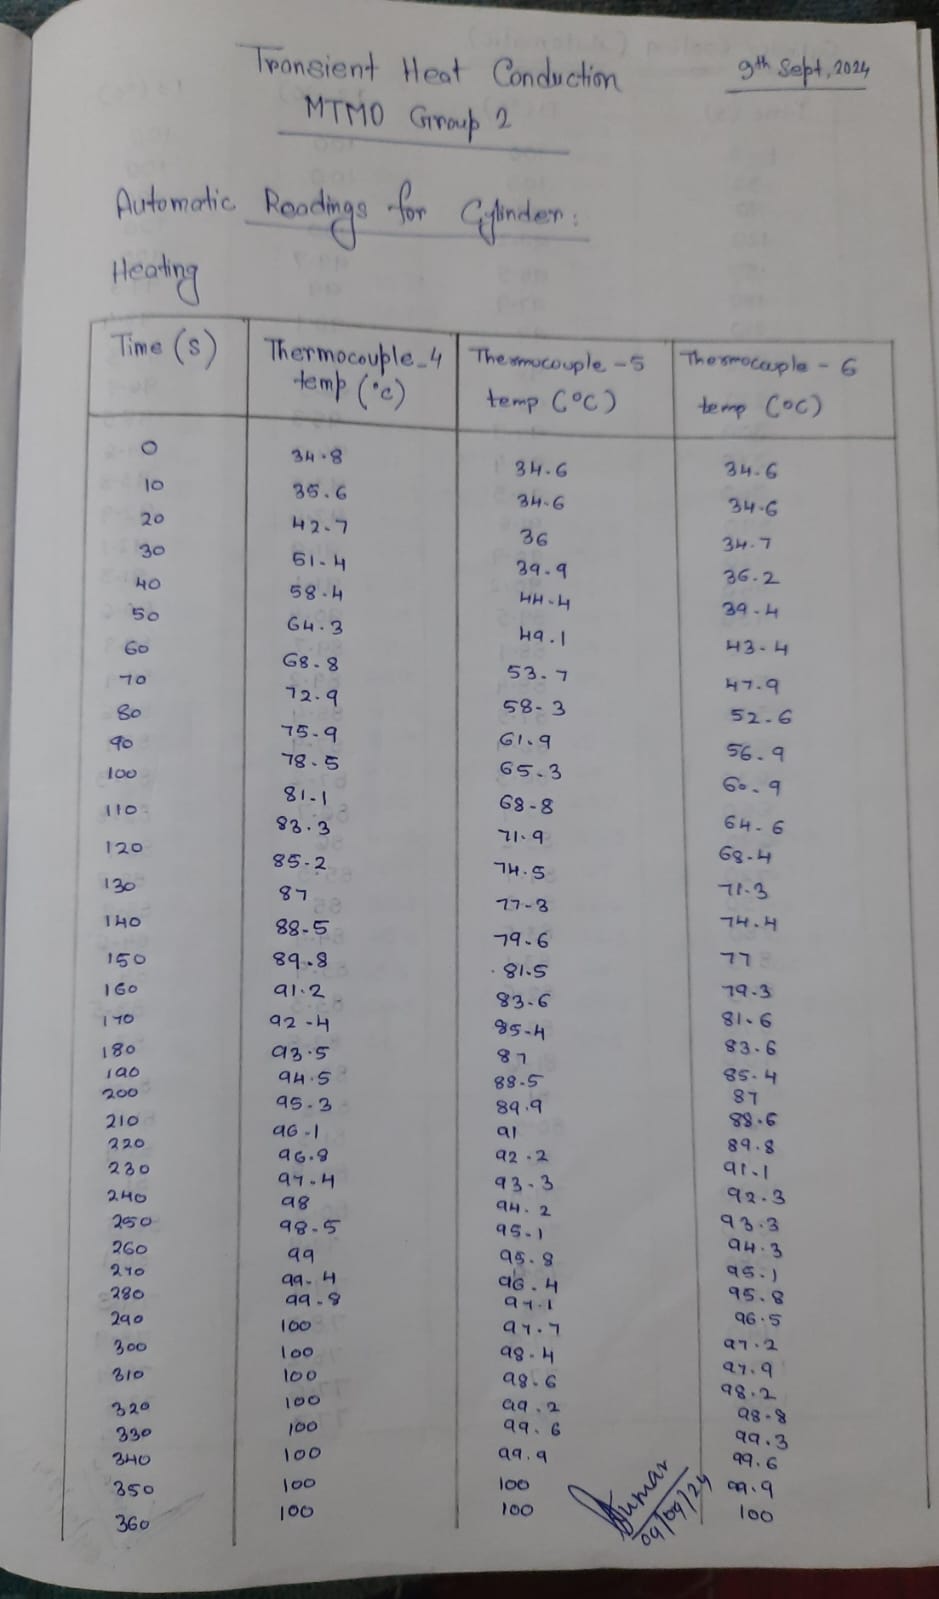 Transient Heat Conduction 9th Sept, 2024
MTMO Group 2
Automatic Readings for Cylinder:
Heating
Time (s) Thermocouple-4 Thermocouple-5 Thermocouple-6
temp (°C) temp (°C) temp (°C)
0 34.8 34.6 34.6
10 35.6 34.6 34.6
20 42.7 36 34.7
30 51.4 39.9 36.2
40 58.4 44.4 39.4
50 64.3 49.1 43.4
60 68.8 53.7 47.9
70 72.9 58.3 52.6
80 75.9 61.9 56.9
90 78.5 65.3 60.9
100 81.1 68.8 64.6
110 83.3 71.9 68.4
120 85.2 74.5 71.3
130 87 77.3 74.4
140 88.5 79.6 77
150 89.8 81.5 79.3
160 91.2 83.6 81.6
170 92.4 85.4 83.6
180 93.5 87 85.4
190 94.5 88.5 87
200 95.3 89.9 88.6
210 96.1 91 89.8
220 96.8 92.2 91.1
230 97.4 93.3 92.3
240 98 94.2 93.3
250 98.5 95.1 94.3
260 99 95.8 95.1
270 99.4 96.4 95.8
280 99.8 97.1 96.5
290 100 97.7 97.2
300 100 98.4 97.9
310 100 98.6 98.2
320 100 99.2 98.8
330 100 99.6 99.3
340 100 99.9 99.6
350 100 100 99.9
360 100 100 100
Kumar
09/09/24